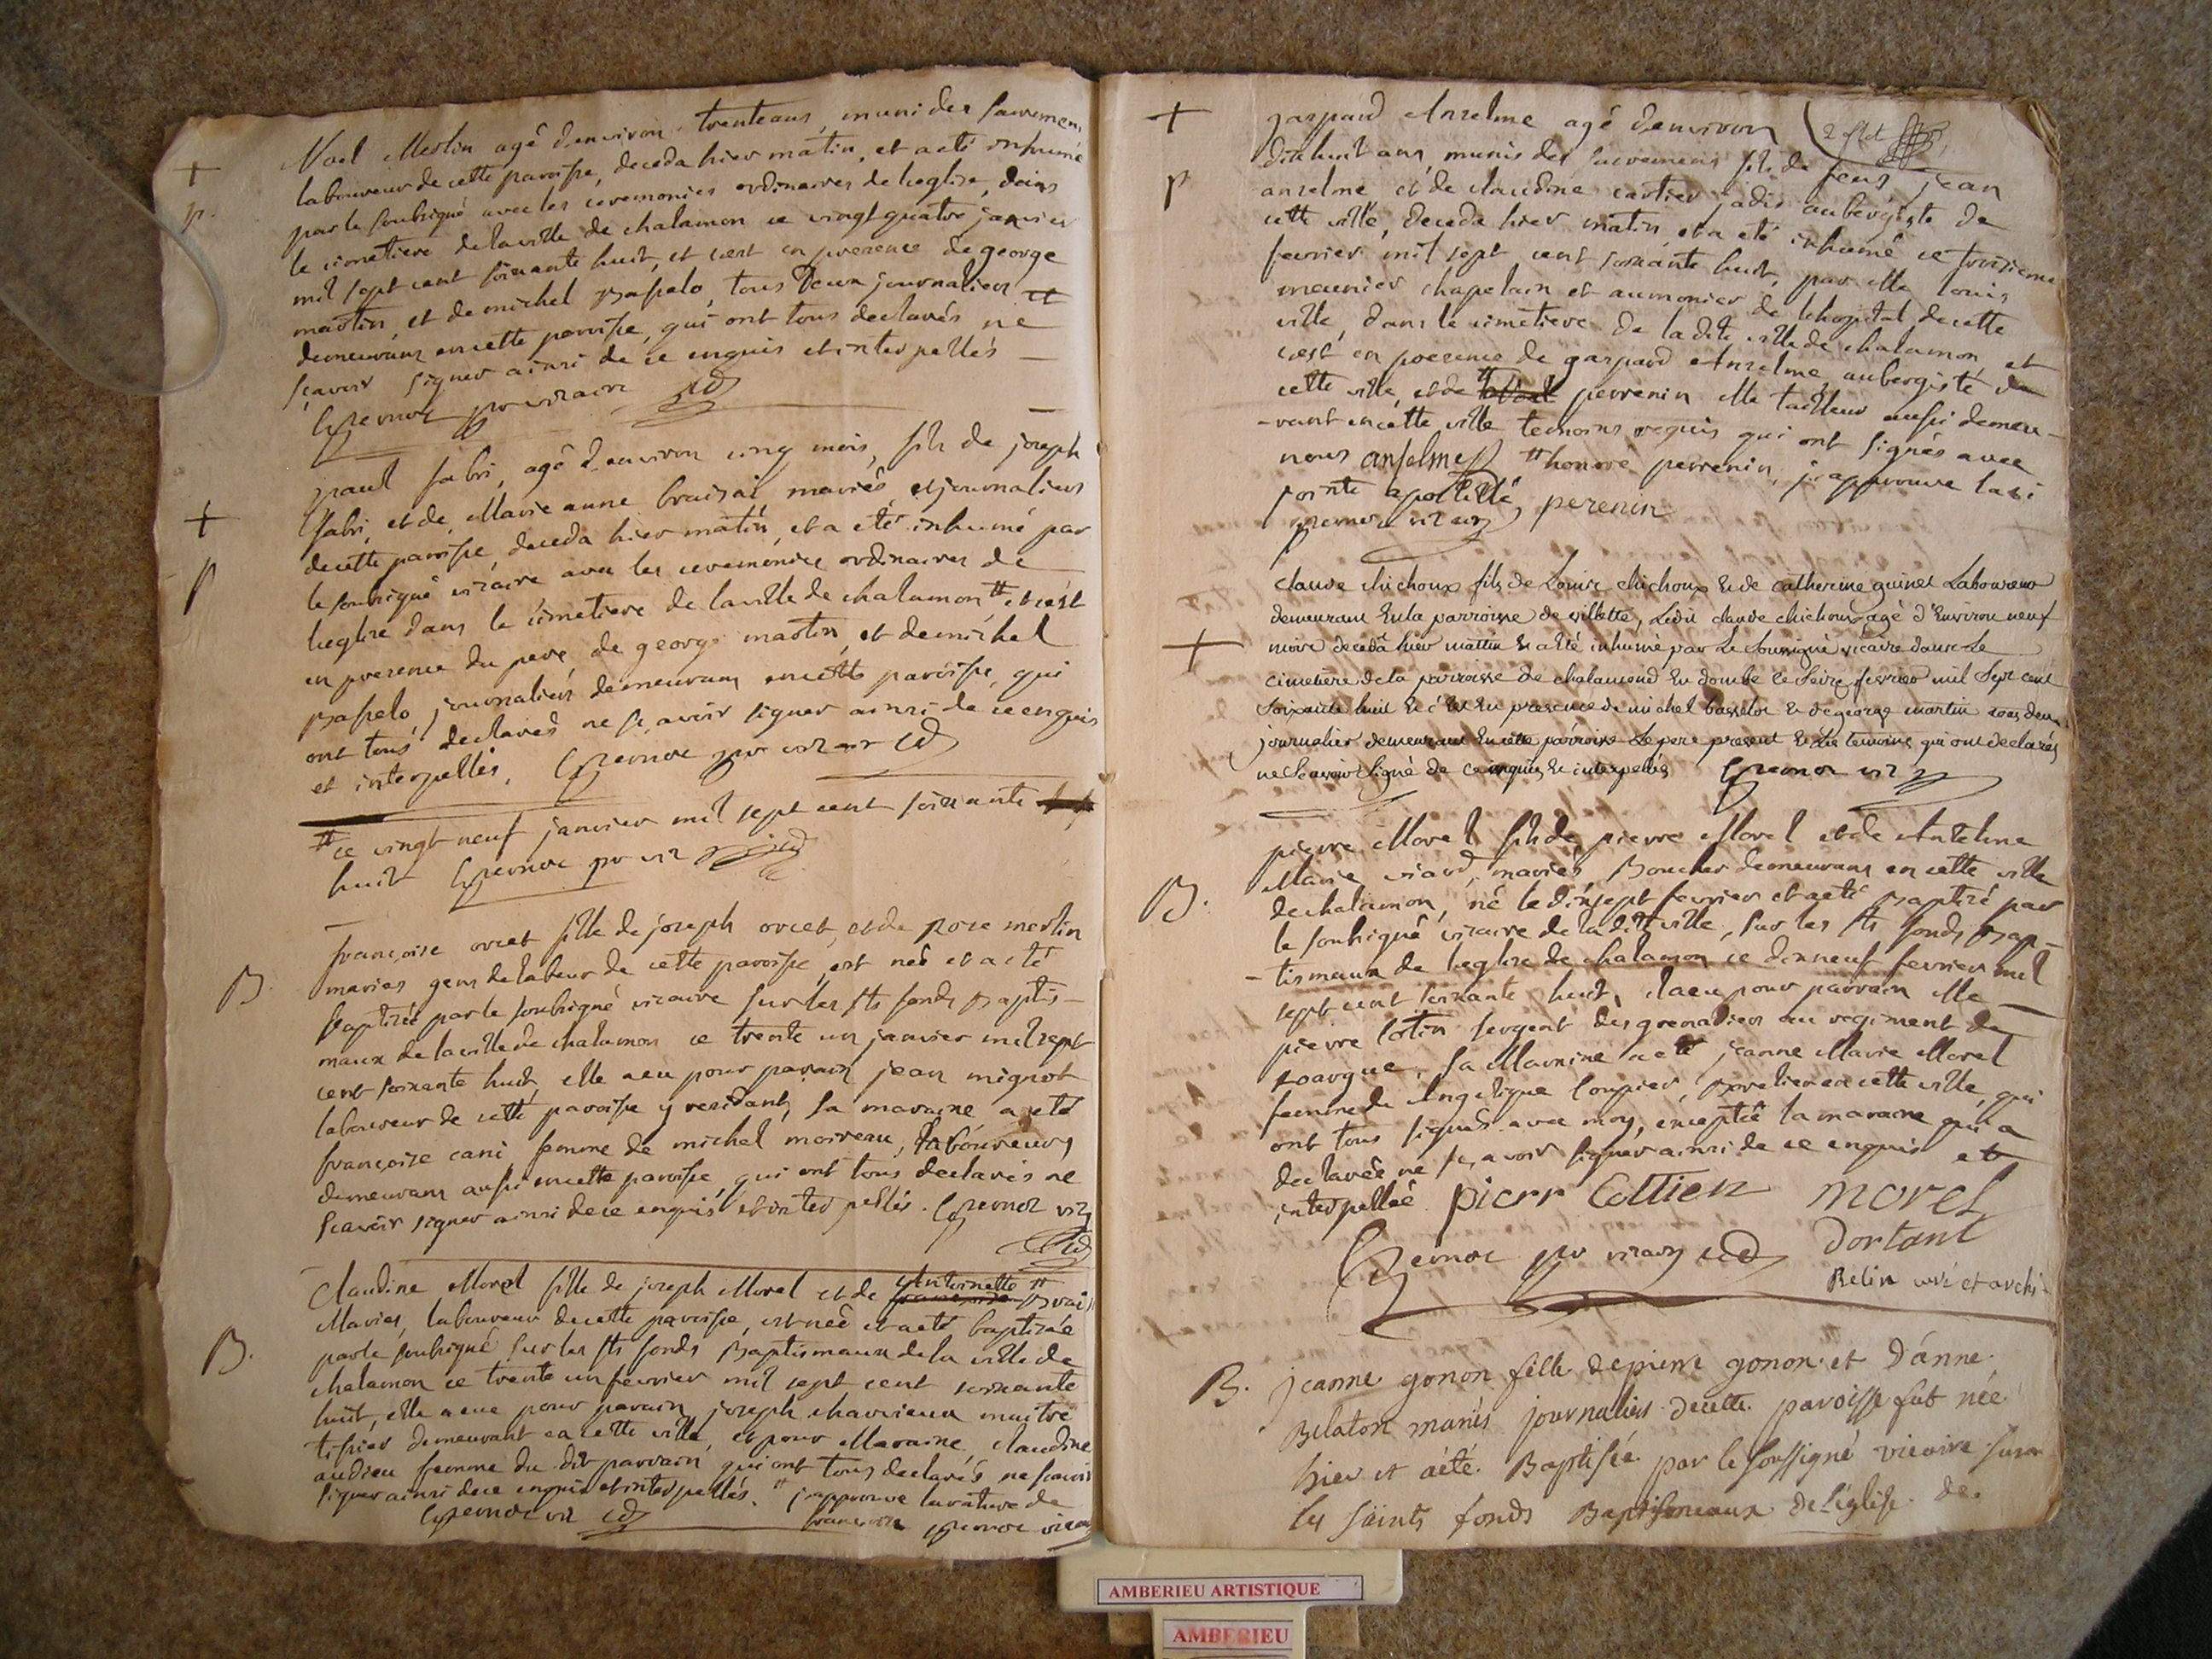 +
p.
Noel Merlin agé denviron trente ans, muni des sacremens
laboureur de cette paroisse, deceda hier matin, et a eté inhumé
par le soubsigné avec les ceremonies ordinaires de leglise, dans
le cimetiere de la ville de chalamon ce vingt quatre janvier
mil sept cent soixante huit, et cest en presence de george
martin, et de michel basselo, tous deux journaliers et
demeurans en cette paroisse, qui ont tous declarés ne
sçavoir signer ainsi de ce enquis et interpellés
+
p
paul fabri, agé denviron cinq mois, fils de joseph
fabri, et de Marie anne mariés, et journaliers
de cette paroisse, deceda hier matin, et a eté inhumé par
le soubsigné vicaire avec les ceremonies ordinaires de
leglise dans le cimetiere de la ville de chalamon # et cest
en presence du pere, de george martin, et de michel
basselo, journaliers demeurans en cette paroisse, qui
ont tous declarés ne sçavoir signer ainsi de ce enquis
et interpellés.
# ce vingt neuf janvier mil sept cent soixante
huit
B
françoise orcet fille de joseph orcet, et de rose merlin
mariés gens de labeur de cette paroisse est née et a eté
baptizée par le soubsigné vicaire sur les sts fonds baptis-
maux de la ville de chalamon ce trente un janvier mil sept
cent soixante huit, elle a eu pour parain jean mignot
laboureur de cette paroisse y residant, sa maraine a eté
françoise cani femme de michel moireau, laboureurs
demeurans aussi en cette paroisse, qui ont tous declarés ne
scavoir signer ainsi de ce enquis et interpellés.
B.
Claudine Morel fille de joseph Morel et de Antoinette #
Mariés, laboureur de cette paroisse, est née et a eté baptisée
par le soubsigné sur les sts fonds Baptismaux de la ville de
chalamon ce trente un fevrier mil sept cent soixante
huit, elle a eue pour parain joseph maitre
tissier demeurant en cette ville, et pour Maraine, claudine
andieu femme du dit parrain qui ont tous declarés ne scavoir
signer ainsi de ce enquis et interpellés. # japprouve la rature de
+
p
gaspard Anselme agé denviron
dix huit ans, munis des sacremens fils de feus jean
anselme et de claudine cartier jadis aubergiste de
cette ville, deceda hier matin et a eté inhumé ce troisieme
fevrier mil sept cent soixante huit, par Me louis
meunier chapelain et aumonier de lhopital de cette
ville, dans le cimetiere de la dite ville de chalamon, et
cest en presence de gaspard Anselme aubergiste de
cette ville, et de perrenin Me tailleur aussi demeu-
-rant en cette ville temoins requis qui ont signés avec
nous anselme # honoré perrenin, japprouve
perenin
+
claude chichoux fils de Louis chichoux & de catherine guinet Laboureur
demeurant En la parroisse de villette, Ledit claude chichoux agé d'Environ neuf
mois decedâ hier mattin & a Eté inhumé par Le soussigné vicaire dans Le
cimetiere de la parroisse de chalamond En dombe Le Seize fevrier mil Sept cent
Soixante huit & c'Est En presence de michel basselot & de george martin tous deux
journalier demeurant En cette parroisse Le pere present & Les temoins qui ont declarés
ne Scavoir Signé de ce enquis & interpellés
B.
pierre Morel fils de pierre Morel et de Antelme
Marie viard, mariés Boucher demeurans en cette ville
de chalamon, né le dixsept fevrier et a eté baptizé par
le soubsigné vicaire de la dite ville, sur les sts fonds bap-
-tismaux de leglise de chalamon ce dixneuf fevrier mil
sept cent soixante huit, il a eu pour parrain Me
pierre cotin sergent des grenadiers au regiment de
sa Maraine a eté jeanne Marie Morel
femme de Angelique loupier, en cette ville, qui
ont tous signés avec moy, exceptée la maraine qui a
declarée ne sçavoir signer ainsi de ce enquis et
interpellée pierr Cottien morel
dortant
Belin curé et archi-
B.
jeanne gonon fille de pierre gonon et d'anne
Belaton mariés journaliers de cette paroisse fut née
hier et a été Baptisée par le soussigné vicaire sur
les saints fonds Baptismeaux de l'église de
AMBERIEU ARTISTIQUE
AMBERIEU